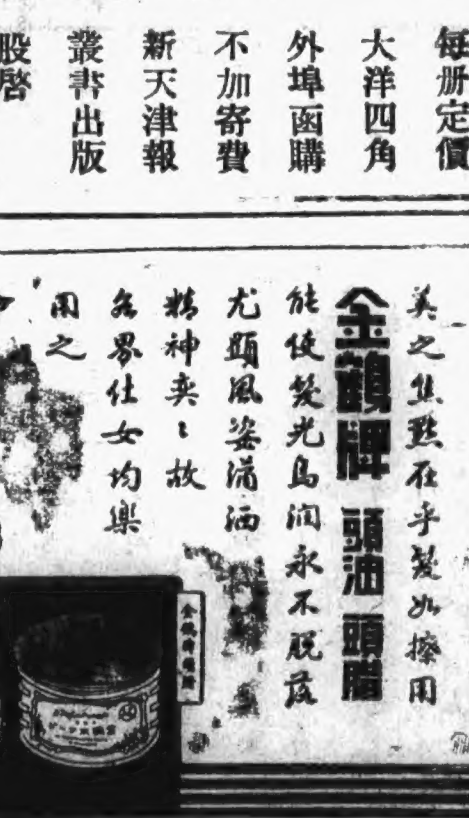 每册定價
大洋四角
外埠函購
不加寄費
新天津報
叢書出版
股啓
美之焦點在乎髮如擦用
金鷄牌 頭油 頭腊
能使髮光烏润永不脱落
尤顕風姿潇洒
精神奕〻故
各界仕女均樂
用之